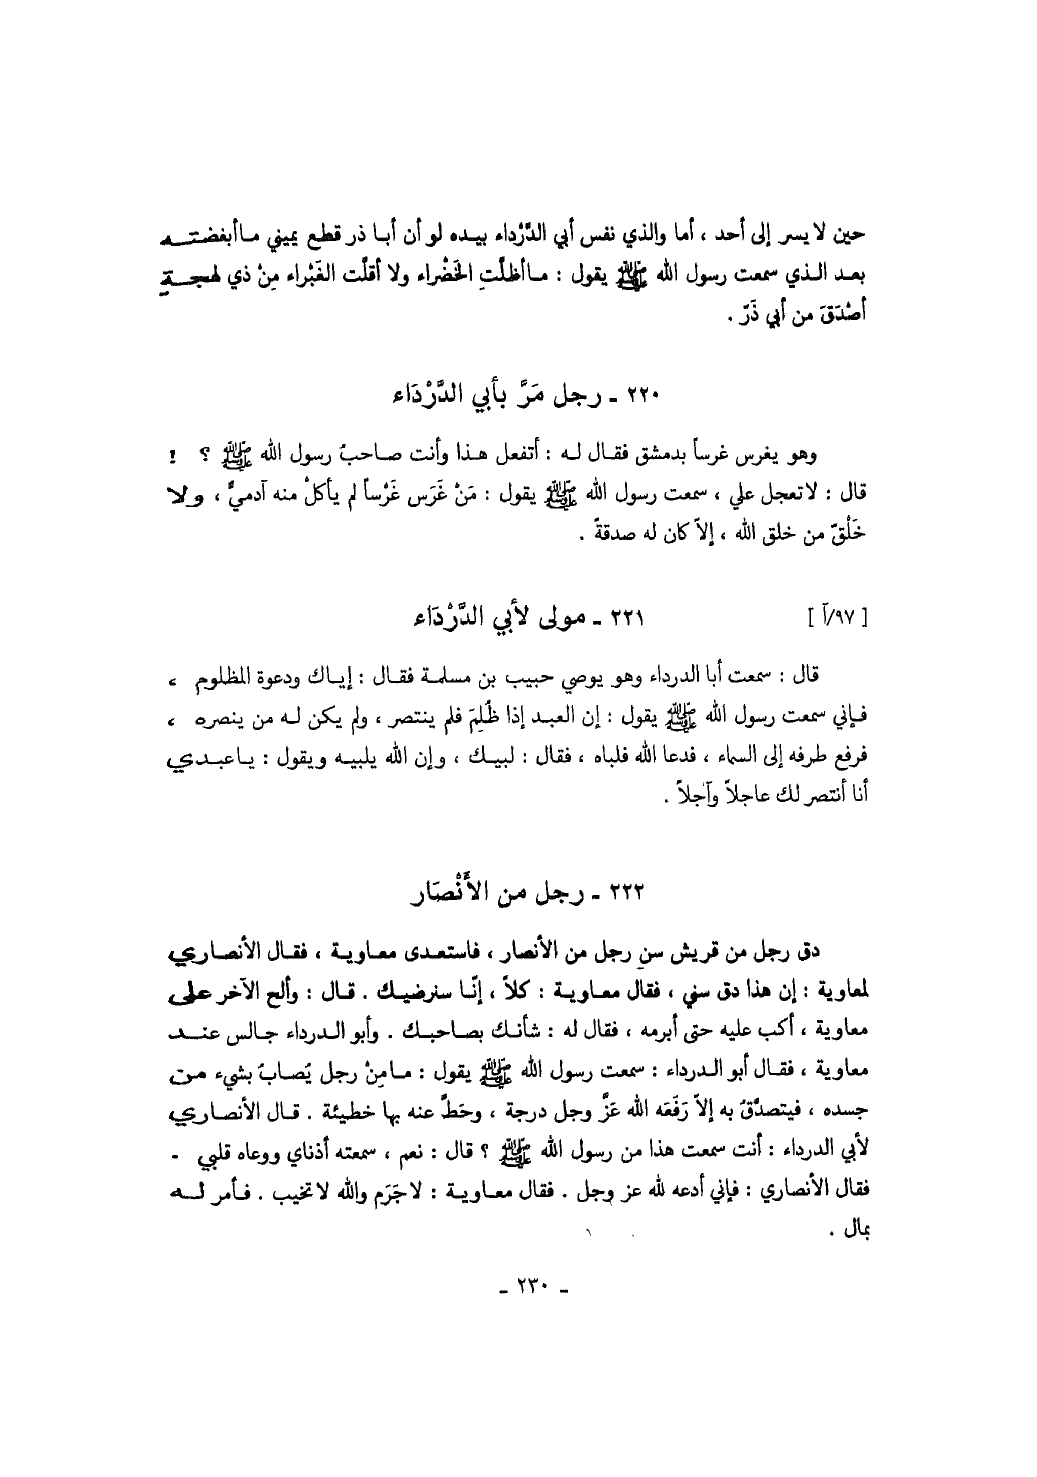 حين لا يسر إلى أحد ، أما والذي نفس أبي الدَّرْداء بيده لو أن أبا ذر قطع يميني ما أبغضته
بعد الذي سمعت رسول الله ﷺ يقول : ما أظلَّتِ الخَضْراء ولا أقلَّت الغَبْراء مِنْ ذي لهجةٍ
أصْدَقَ من أبي ذَرّ .
٢٢٠ ـ رجل مَرَّ بأبي الدَّرْدَاء
وهو يغرس غرساً بدمشق فقال له : أتفعل هذا وأنت صاحبُ رسول الله ﷺ ؟ !
قال : لا تعجل علي ، سمعت رسول الله ﷺ يقول : مَنْ غَرَس غَرْساً لم يأكلْ منه آدميٌّ ، ولا
خَلْقٌ من خلق الله ، إلاّ كان له صدقةً .
٢٢١ ـ مولى لأبي الدَّرْدَاء [ ٩٧/آ ]
قال : سمعت أبا الدرداء وهو يوصي حبيب بن مسلمة فقال : إياك ودعوة المظلوم ،
فإني سمعت رسول الله ﷺ يقول : إن العبد إذا ظُلِمَ فلم ينتصر ، ولم يكن له من ينصره ،
فرفع طرفه إلى السماء ، فدعا الله فلباه ، فقال : لبيك ، وإن الله يلبيه ويقول : يا عبدي
أنا أنتصر لك عاجلاً وآجلاً .
٢٢٢ ـ رجل من الأَنْصَار
دق رجل من قريش سن رجل من الأنصار ، فاستعدى معاوية ، فقال الأنصاري
لمعاوية : إن هذا دق سني ، فقال معاوية : كلاّ ، إنّا سنرضيك . قال : وألح الآخر على
معاوية ، أكب عليه حتى أبرمه ، فقال له : شأنك بصاحبك . وأبو الدرداء جالس عند
معاوية ، فقال أبو الدرداء : سمعت رسول الله ﷺ يقول : ما مِنْ رجل يُصابُ بشيء من
جسده ، فيتصدَّقُ به إلاّ رَفَعَه الله عَزَّ وجل درجة ، وحَطَّ عنه بها خطيئة . قال الأنصاري
لأبي الدرداء : أنت سمعت هذا من رسول الله ﷺ ؟ قال : نعم ، سمعته أذناي ووعاه قلبي .
فقال الأنصاري : فإني أدعه لله عز وجل . فقال معاوية : لا جَرَم والله لا تخيب . فأمر له
بمال .
ـ ٢٣٠ ـ